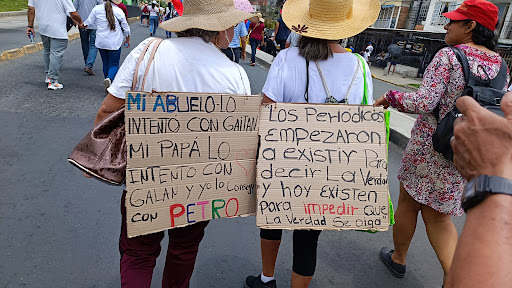 MI ABUELO LO
INTENTO CON GAITAN
MI PAPA LO
INTENTO CON
GALAN Y yo lo Conseguí
CON PETRO
"Los Periódicos
EmpezaRon
a existir Para
decir La Verdad
y hoy existen
Para impedir que
La Verdad Se oiga"